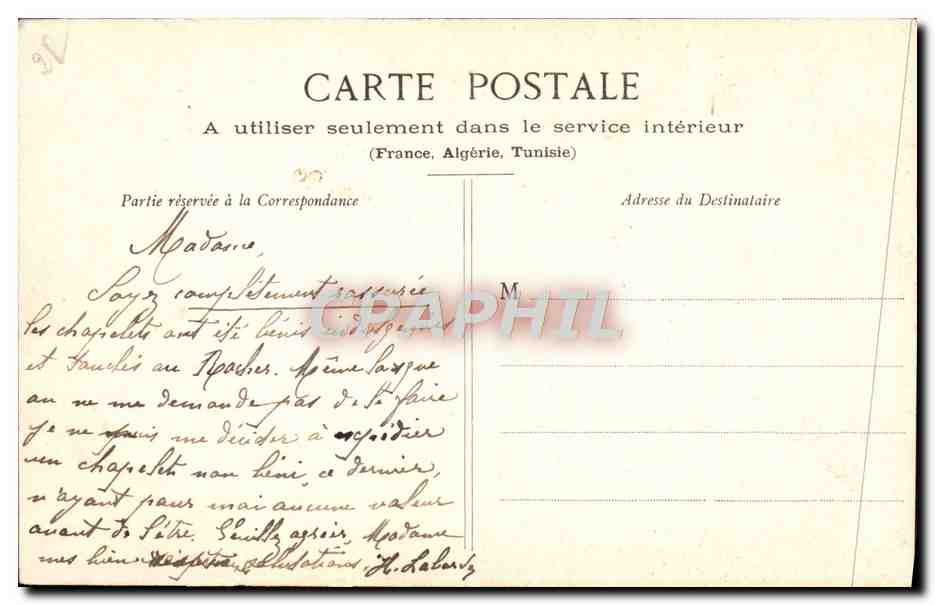 CARTE POSTALE
A utiliser seulement dans le service intérieur
(France, Algérie, Tunisie)
Partie réservée à la Correspondance
Adresse du Destinataire
Madame,
Soyez complètement rassurée
les chapelets ont été bénis
et touchés au Rocher. Même lorsque
on ne me demande pas de le faire
je ne puis me décider à expédier
un chapelet non béni, ce dernier,
n'ayant pour moi aucune valeur
avant de l'être. Veuillez agréer, Madame
mes bien salutations, H.
M
CPAPHIL